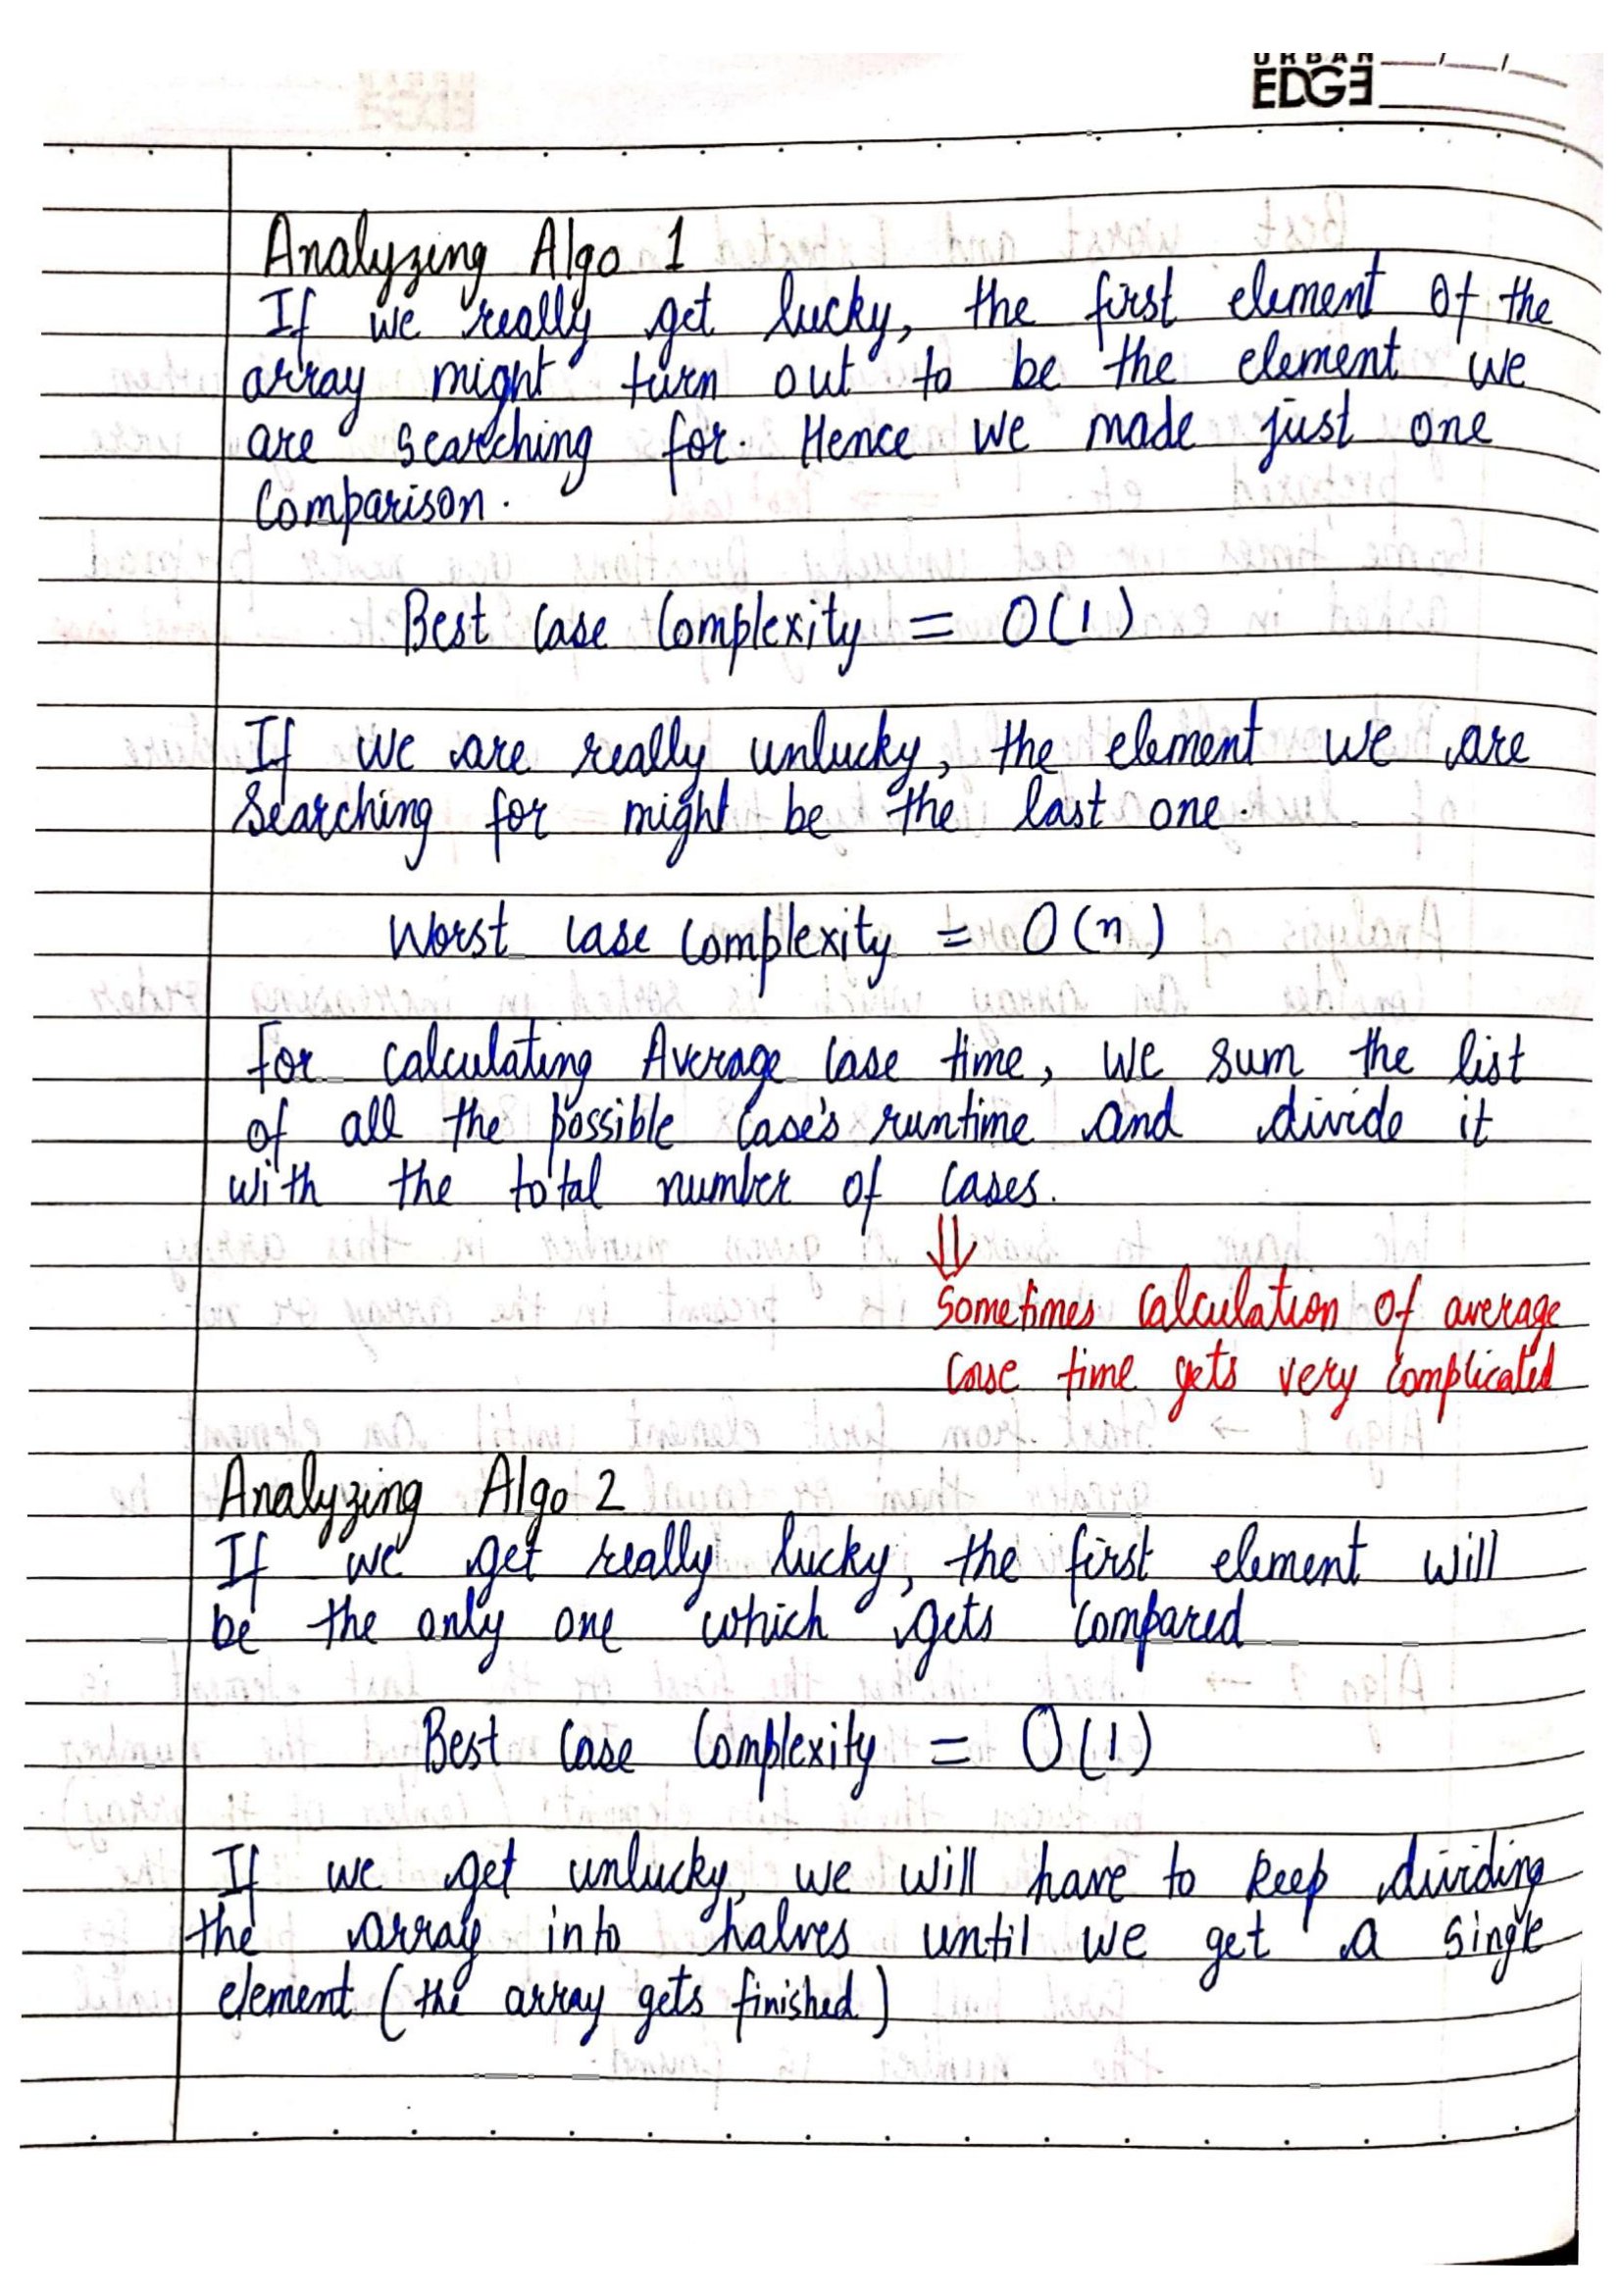 URBAN
EDGE
Analyzing Algo 1
If we really get lucky, the first element of the
array might turn out to be the element we
are searching for. Hence we made just one
Comparison.
Best Case Complexity = O(1)
If we are really unlucky, the element we are
Searching for might be the last one.
Worst case Complexity = O(n)
For calculating Average Case time, we sum the list
of all the possible Case's runtime and divide it
with the total number of cases.
⇓
Sometimes Calculation of average
Case time gets very Complicated
Analyzing Algo 2
If we get really lucky, the first element will
be the only one which gets Compared
Best Case Complexity = O(1)
If we get unlucky, we will have to keep dividing
the array into halves until we get a single
element (the array gets finished)